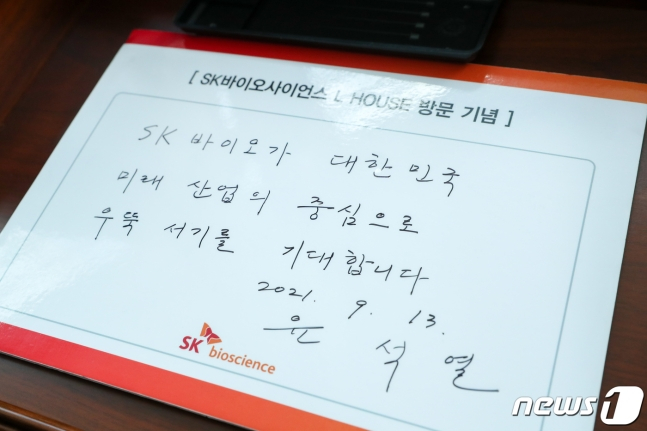 [ SK바이오사이언스 L HOUSE 방문 기념 ]
SK 바이오가 대한민국
미래 산업의 중심으로
우뚝 서기를 기대합니다
2021. 9. 13.
윤 석 열
SK bioscience
news1